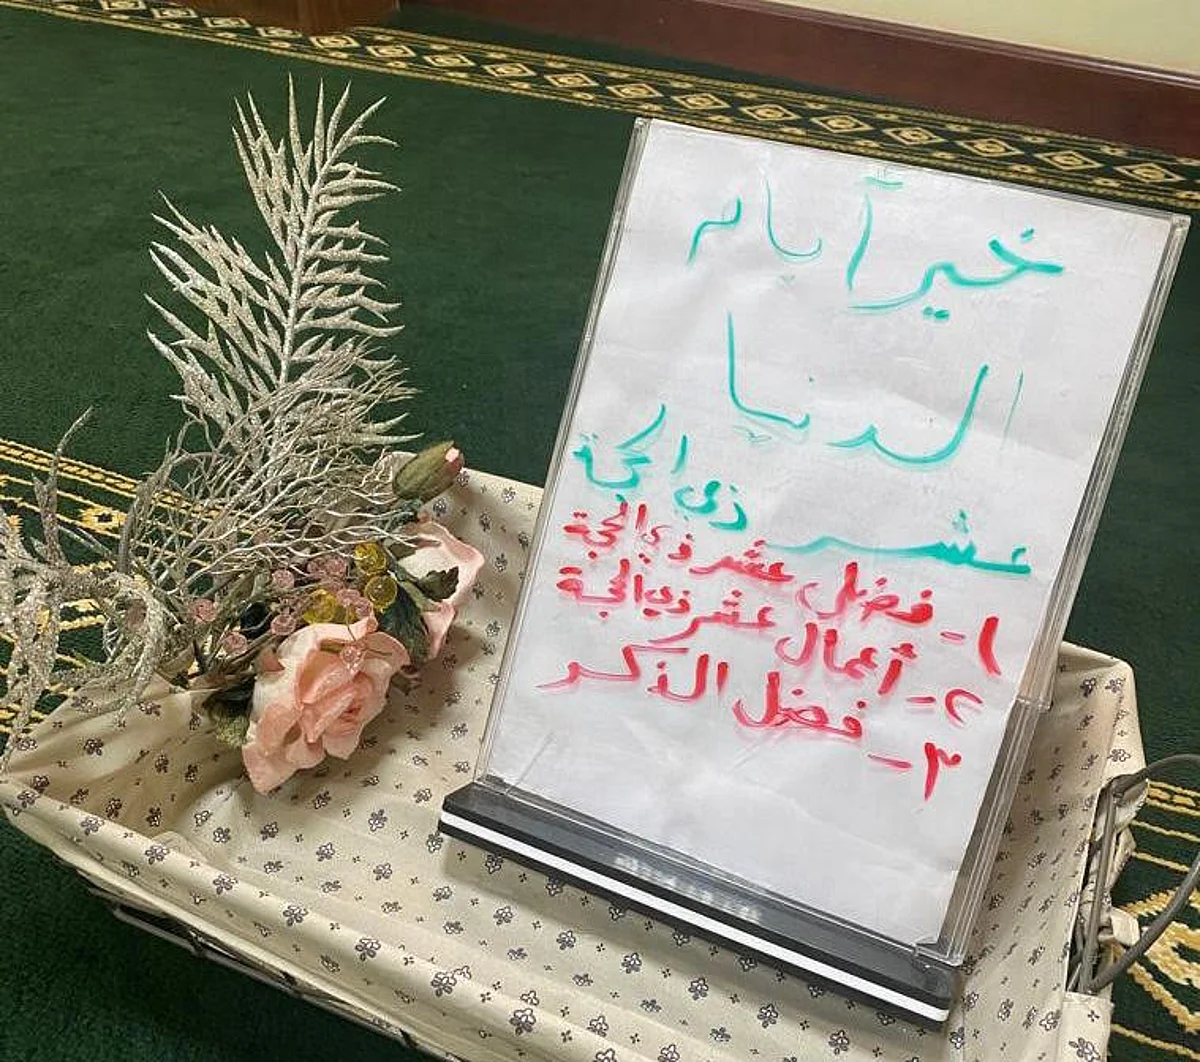 خير أيام
الدنيا
عشر ذي الحجة
١- فضل عشر ذي الحجة
٢- أعمال عشر ذي الحجة
٣- فضل الذكر